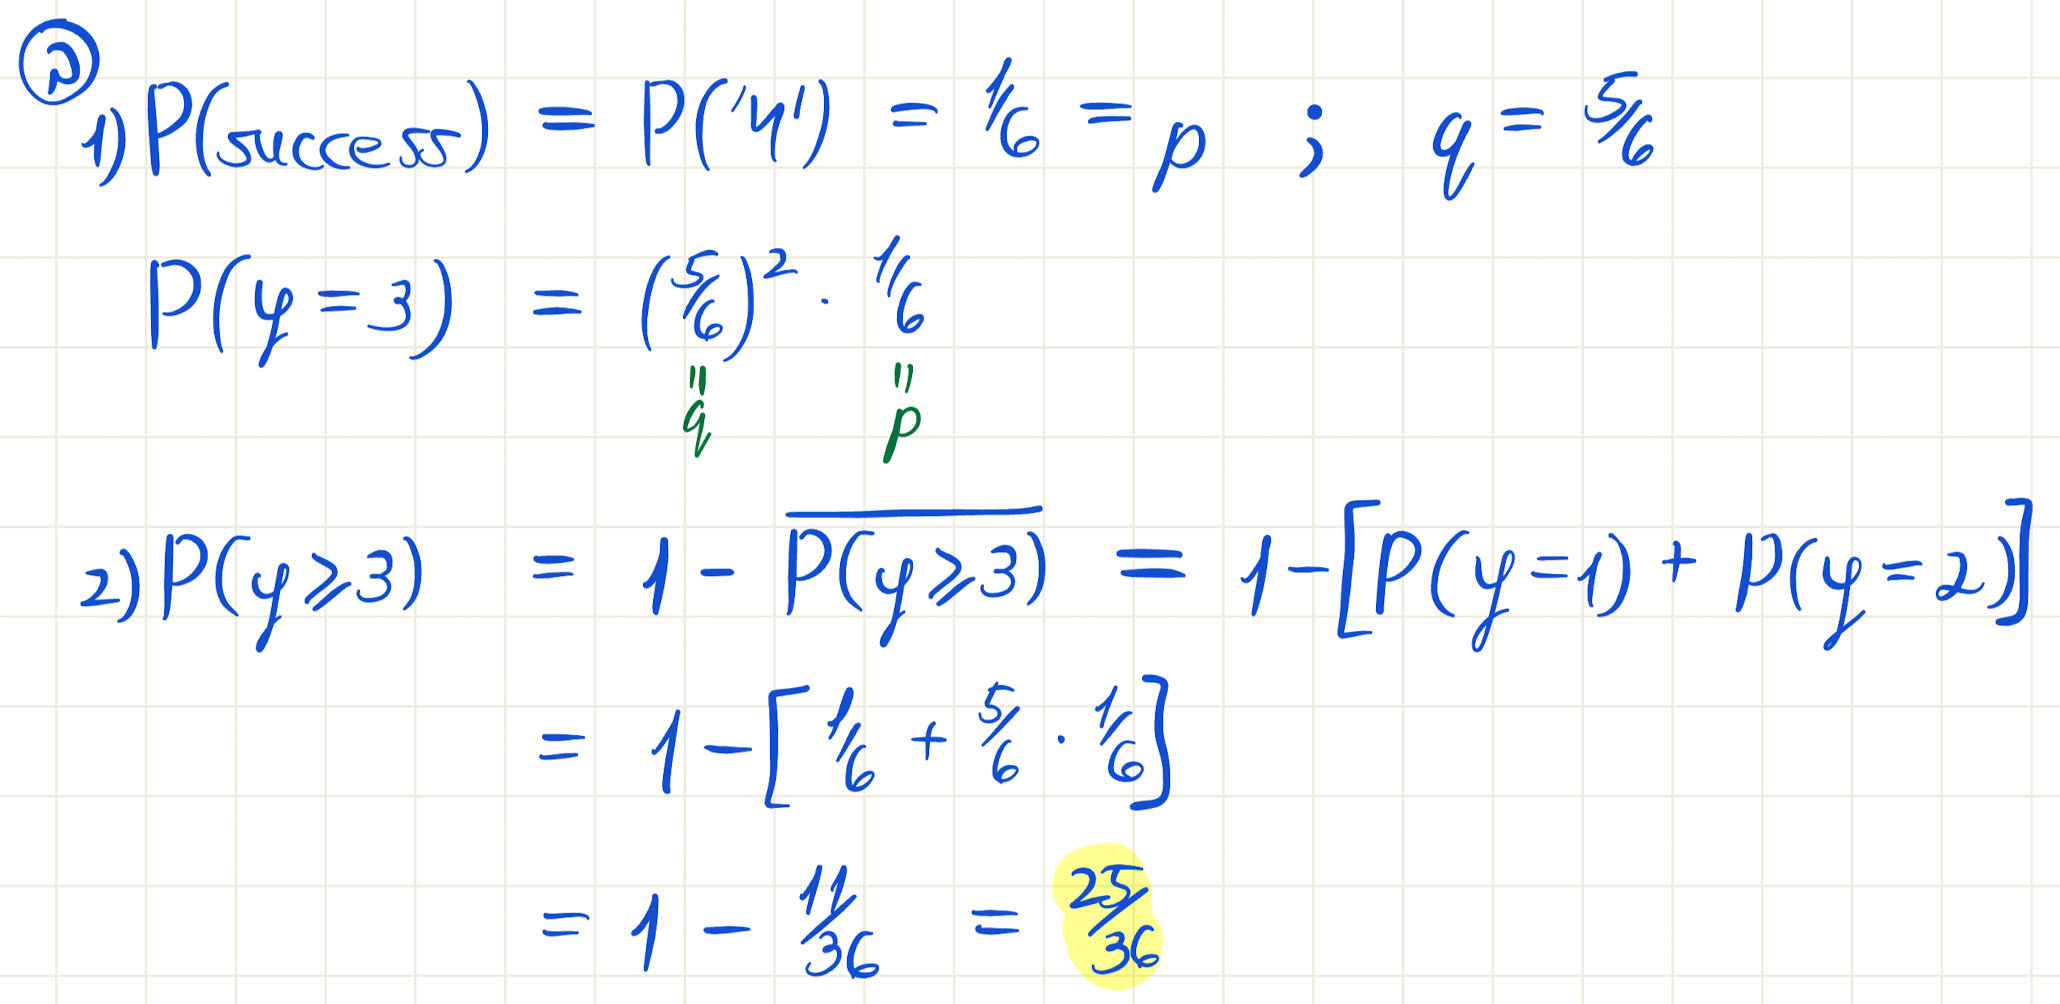 ②
1) P(success) = P('4') = 1/6 = p ; q = 5/6
P(y = 3) = (5/6)² · 1/6
" "
q p
2) P(y ⩾ 3) = 1 - \overline{P(y ⩾ 3)} = 1 - [P(y = 1) + P(y = 2)]
= 1 - [1/6 + 5/6 · 1/6]
= 1 - 11/36 = 25/36